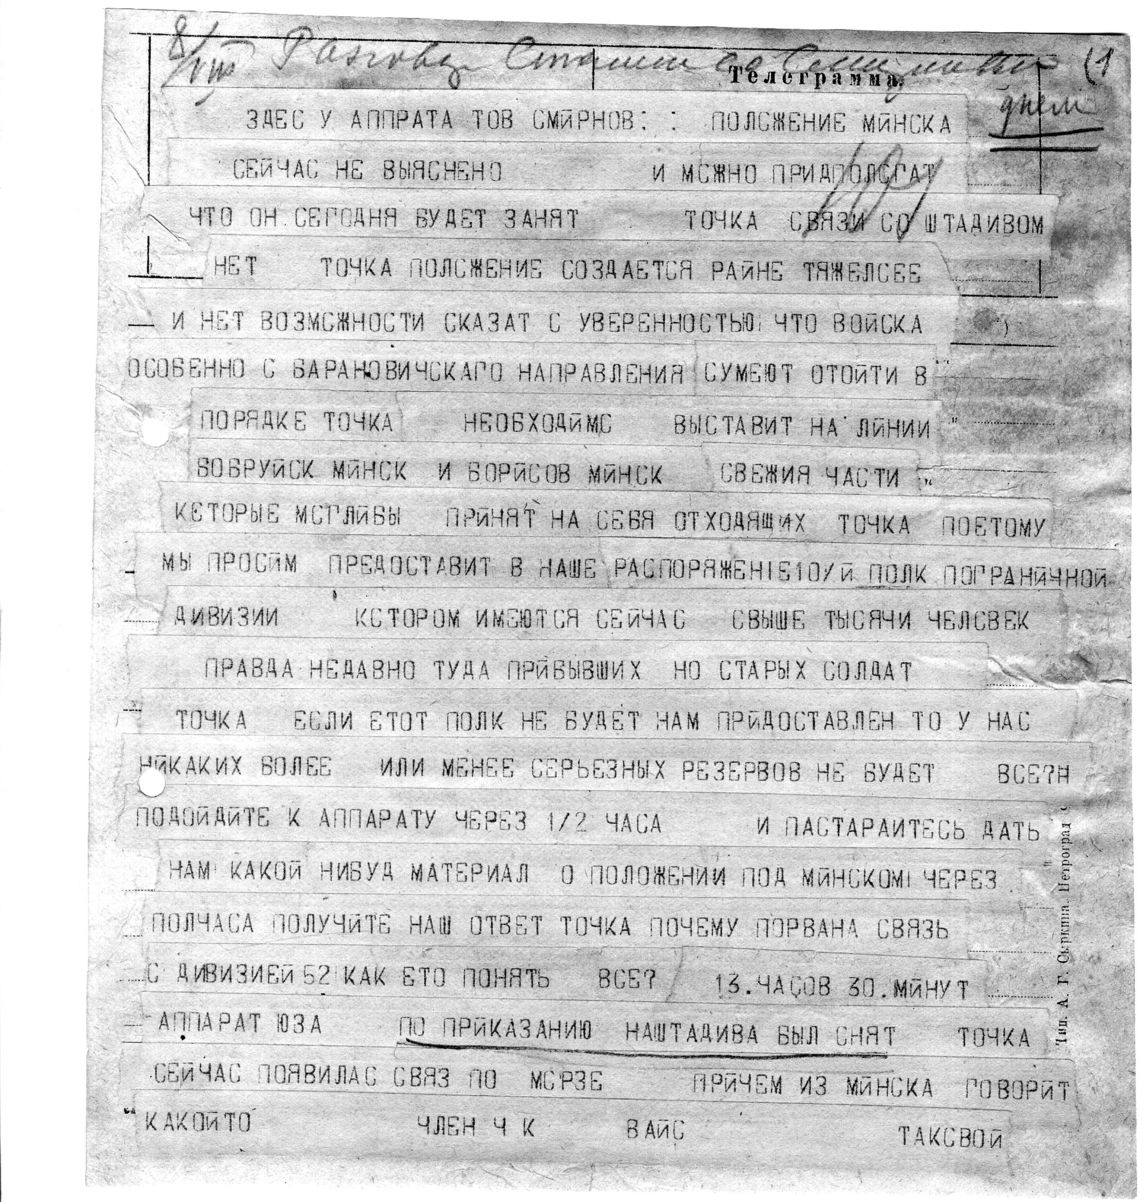 8/VII Разговор Сталина со Смирновым (1
Телеграмма.
днем
ЗДЕС У АППРАТА ТОВ СМЙРНОВ: : ПОЛСЖЕНИЕ МЙНСКА
СЕЙЧАС НЕ ВЫЯСНЕНО И МСЖНО ПРИДПОЛСГАТ
ЧТО ОН СЕГОДНЯ БУДЕТ ЗАНЯТ ТОЧКА СВЯЗИ СО ШТАДИВОМ
НЕТ ТОЧКА ПОЛСЖЕНИЕ СОЗДАЕТСЯ РАЙНЕ ТЯЖЕЛСЕЕ
— И НЕТ ВОЗМСЖНОСТИ СКАЗАТ С УВЕРЕННОСТЬЮ ЧТО ВОЙСКА
ОСОБЕННО С БАРАНОВИЧСКАГО НАПРАВЛЕНИЯ СУМЕЮТ ОТОЙТИ В
ПОРЯДКЕ ТОЧКА НЕОБХОДЙМС ВЫСТАВИТ НА ЛЙНИИ
БОБРУЙСК МЙНСК И БОРЙСОВ МЙНСК СВЕЖИЯ ЧАСТИ
КСТОРЫЕ МСГЛЙБЫ ПРЙНЯТ НА СЕБЯ ОТХОДЯЩИХ ТОЧКА ПОЕТОМУ
МЫ ПРОСЙМ ПРЕДОСТАВИТ В НАШЕ РАСПОРЯЖЕНІЕ10/Й ПОЛК ПОГРАНЙЧНОЙ
ДИВИЗИИ КСТОРОМ ИМЕЮТСЯ СЕЙЧАС СВЫШЕ ТЫСЯЧИ ЧЕЛСВЕК
ПРАВДА НЕДАВНО ТУДА ПРЙБЫВШИХ НО СТАРЫХ СОЛДАТ
ТОЧКА ЕСЛИ ЕТОТ ПОЛК НЕ БУДЕТ НАМ ПРЙДОСТАВЛЕН ТО У НАС
НЙКАКИХ БОЛЕЕ ИЛИ МЕНЕЕ СЕРЬЕЗНЫХ РЕЗЕРВОВ НЕ БУДЕТ ВСЕ?Н
ПОДОЙДЙТЕ К АППАРАТУ ЧЕРЕЗ 1/2 ЧАСА И ПАСТАРАИТЕСЬ ДАТЬ
НАМ КАКОЙ НИБУД МАТЕРИАЛ О ПОЛОЖЕНИИ ПОД МЙНСКОМ ЧЕРЕЗ
ПОЛЧАСА ПОЛУЧЙТЕ НАШ ОТВЕТ ТОЧКА ПОЧЕМУ ПОРВАНА СВЯЗЬ
С ДИВИЗИЕЙ 52 КАК ЕТО ПОНЯТЬ ВСЕ? 13.ЧАСОВ 30.МЙНУТ
АППАРАТ ЮЗА ПО ПРЙКАЗАНИЮ НАШТАДИВА БЫЛ СНЯТ ТОЧКА
СЕЙЧАС ПОЯВИЛАС СВЯЗ ПО МСРЗЕ ПРЙЧЕМ ИЗ МЙНСКА ГОВОРЙТ
КАКОЙТО ЧЛЕН Ч К ВАЙС ТАКСВОЙ
Тип. А. Г. Сыркина, Петроград